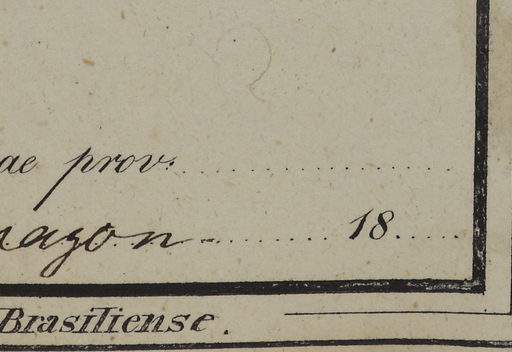 ae prov.
azon 18
Brasiliense.